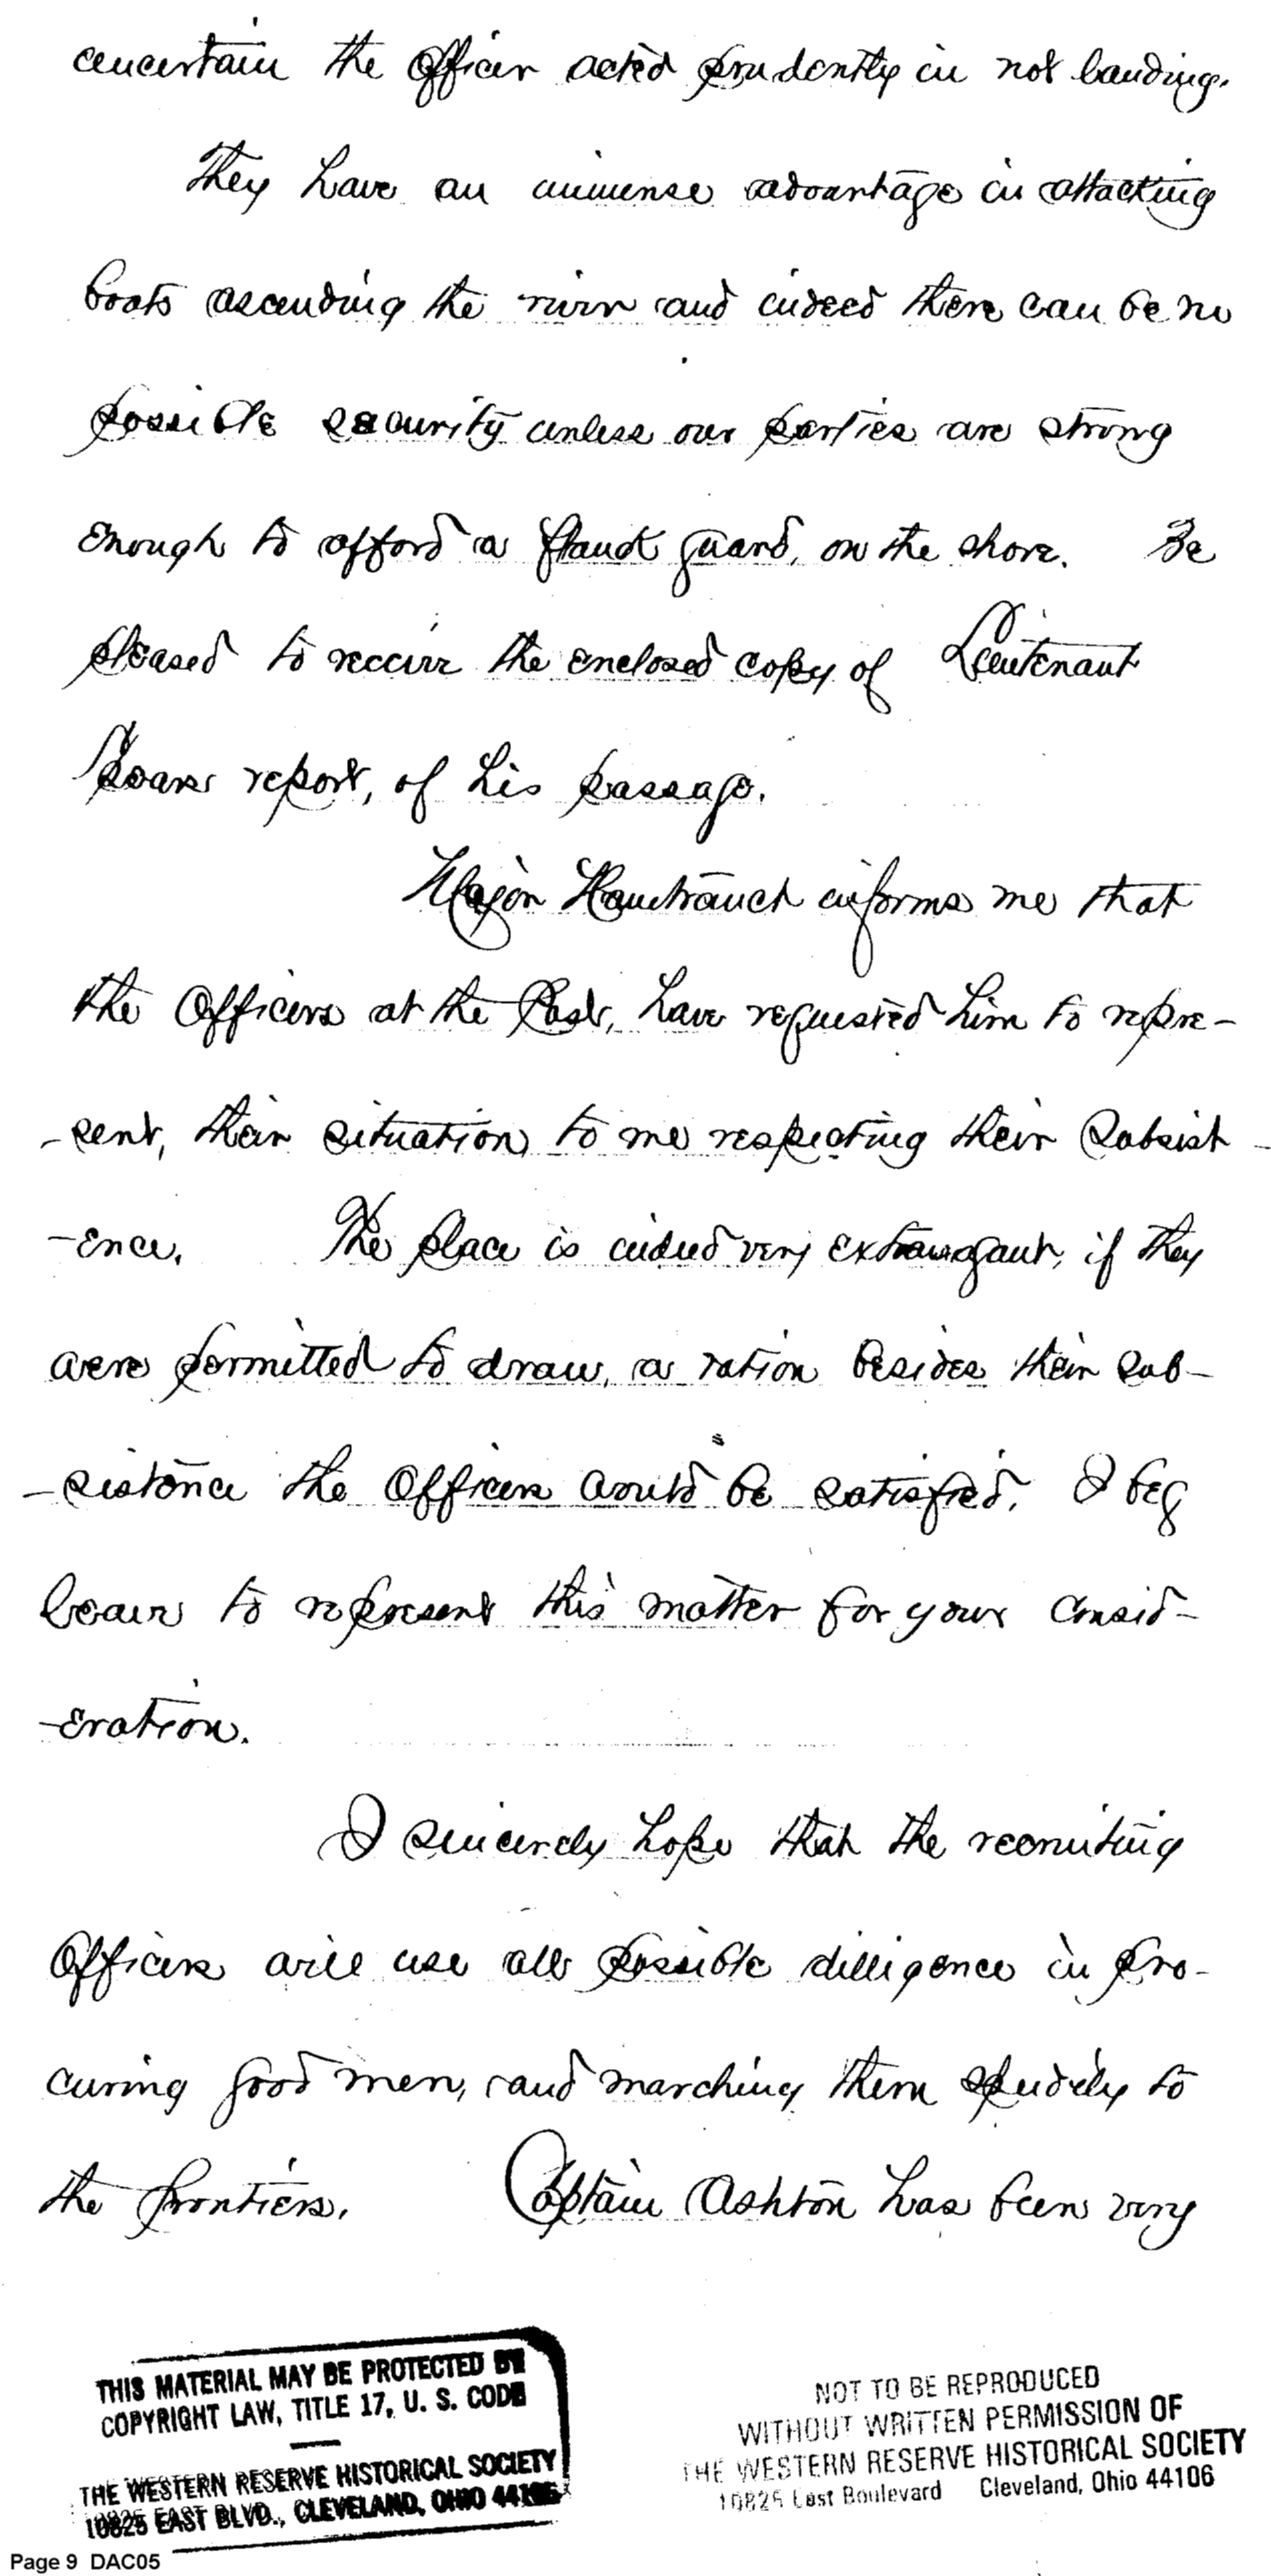 uncertain the officer acted prudently in not landing.
They have an immense advantage in attacking
boats ascending the river and indeed there can be no
possible security unless our parties are strong
enough to afford a flank guard, on the shore. Be
pleased to receive the enclosed copy of Lieutenant
report, of his passage.
Major Hamtramck informs me that
the Officers at the Post, have requested him to repre-
-sent, their situation, to me respecting their Subsist-
-ence. The place is indeed very extravagant, if they
were permitted to draw, a ration besides their sub-
-sistence the Officers would be satisfied. I beg
leave to represent this matter for your consid-
-eration.
I sincerely hope that the recruiting
Officers will use all possible dilligence in pro-
curing good men, and marching them speedily to
the frontiers. Captain Ashton has been very
THIS MATERIAL MAY BE PROTECTED BY
COPYRIGHT LAW, TITLE 17, U. S. CODE
THE WESTERN RESERVE HISTORICAL SOCIETY
10825 EAST BLVD., CLEVELAND, OHIO 44106
NOT TO BE REPRODUCED
WITHOUT WRITTEN PERMISSION OF
THE WESTERN RESERVE HISTORICAL SOCIETY
10825 East Boulevard Cleveland, Ohio 44106
Page 9 DAC05